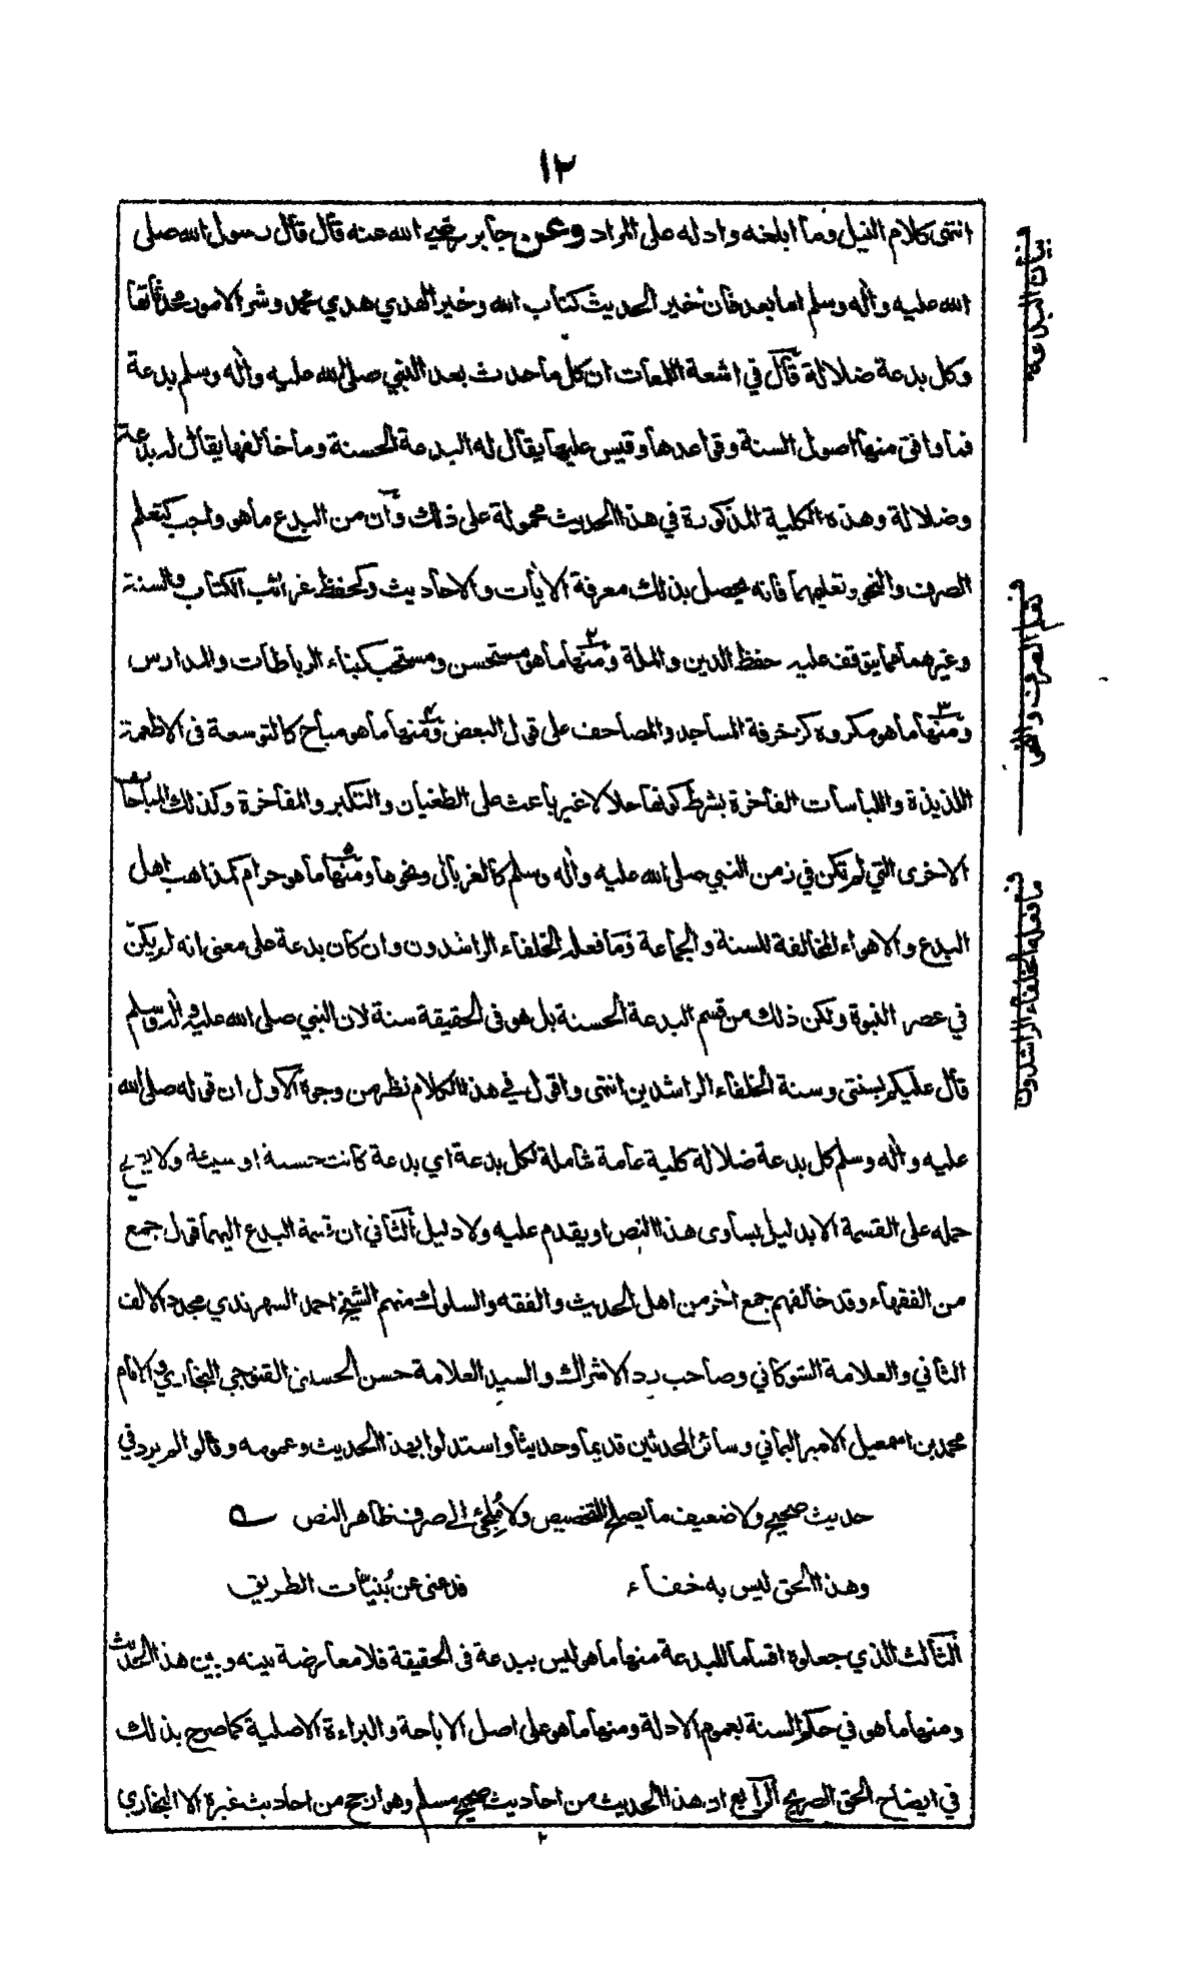 ١٢
انتهى كلام النيل وما ابلغه وادله على المراد وعن جابر رضي الله عنه قال قال رسول الله صلى
الله عليه واٰله وسلم اما بعد فان خير الحديث كتاب الله وخير الهدي هدي محمد وشر الامور محدثاتها
وكل بدعة ضلالة قال في اشعة اللمعات ان كل ما حدث بعد النبي صلى الله عليه واٰله وسلم بدعة
فما وافق منها اصول السنة وقواعدها وقيس عليها يقال له البدعة الحسنة وما خالفها يقال له بدعة
وضلالة وهذه الكلية المذكورة في هذا الحديث محمولة على ذلك وان من البدع ما هو واجب كتعلم
الصرف والنحو وتعليمهما فانه يحصل بذلك معرفة الاٰيات والاحاديث وكحفظ غرائب الكتاب والسنة
وغيرهما مما يتوقف عليه حفظ الدين والملة ومنها ٢ ما هو مستحسن ومستحب كبناء الرباطات والمدارس
ومنها ٣ ما هو مكروه كزخرفة المساجد والمصاحف على قول البعض ومنها ٤ ما هو مباح كالتوسعة في الاطعمة
اللذيذة واللباسات الفاخرة بشرط كونها حلالا غير باعث على الطغيان والتكبر والمفاخرة وكذلك المباحات
الاخرى التي لم تكن في زمن النبي صلى الله عليه واٰله وسلم كالغربال ونحوها ومنها ٥ ما هو حرام كمذاهب اهل
البدع والاهواء المخالفة للسنة والجماعة وما فعله الخلفاء الراشدون وان كان بدعة على معنى انه لم يكن
في عصر النبوة ولكن ذلك من قسم البدعة الحسنة بل هو في الحقيقة سنة لان النبي صلى الله عليه واٰله وسلم
قال عليكم بسنتي وسنة الخلفاء الراشدين انتهى واقول في هذا الكلام نظر من وجوه الاول ان قوله صلى الله
عليه واٰله وسلم كل بدعة ضلالة كلية عامة شاملة لكل بدعة اي بدعة كانت حسنة او سيئة ولا يجي
حمله على القسمة الا بدليل يساوى هذا النص او يقدم عليه ولا دليل الثاني ان قسمة البدع اليهما قول جمع
من الفقهاء وقد خالفهم جمع اٰخر من اهل الحديث والفقه والسلوك منهم الشيخ احمد السهرندي مجدد الالف
الثاني والعلامة الشوكاني وصاحب رد الاشراك والسيد العلامة حسن الحسيني القنوجي البخاري والامام
محمد بن اسمعيل الامير اليماني وسائر المحدثين قديما وحديثا واستدلوا بهذا الحديث وعمومه وقالوا لم يرد في
حديث صحيح ولا ضعيف ما يصلح للتخصيص ولا مُلجئ الى صرف ظاهر النص
وهذا الحق ليس به خفاء فدعنى عن بُنَيّات الطريق
الثالث الذي جعلوه اقساما للبدعة منها ما هو ليس ببدعة في الحقيقة فلا معارضة بينه وبين هذا الحديث
ومنها ما هو في حكم السنة بعموم الادلة ومنها ما هو على اصل الاباحة والبراءة الاصلية كما صرح بذلك
في ايضاح الحق الصريح الرابع ان هذا الحديث من احاديث صحيح مسلم وهو ارجح من احاديث غيره الا البخاري
٢
ف بيان البدعة
ف تعلم الصرف والنحو
ف ما فعله الخلفاء الراشدون